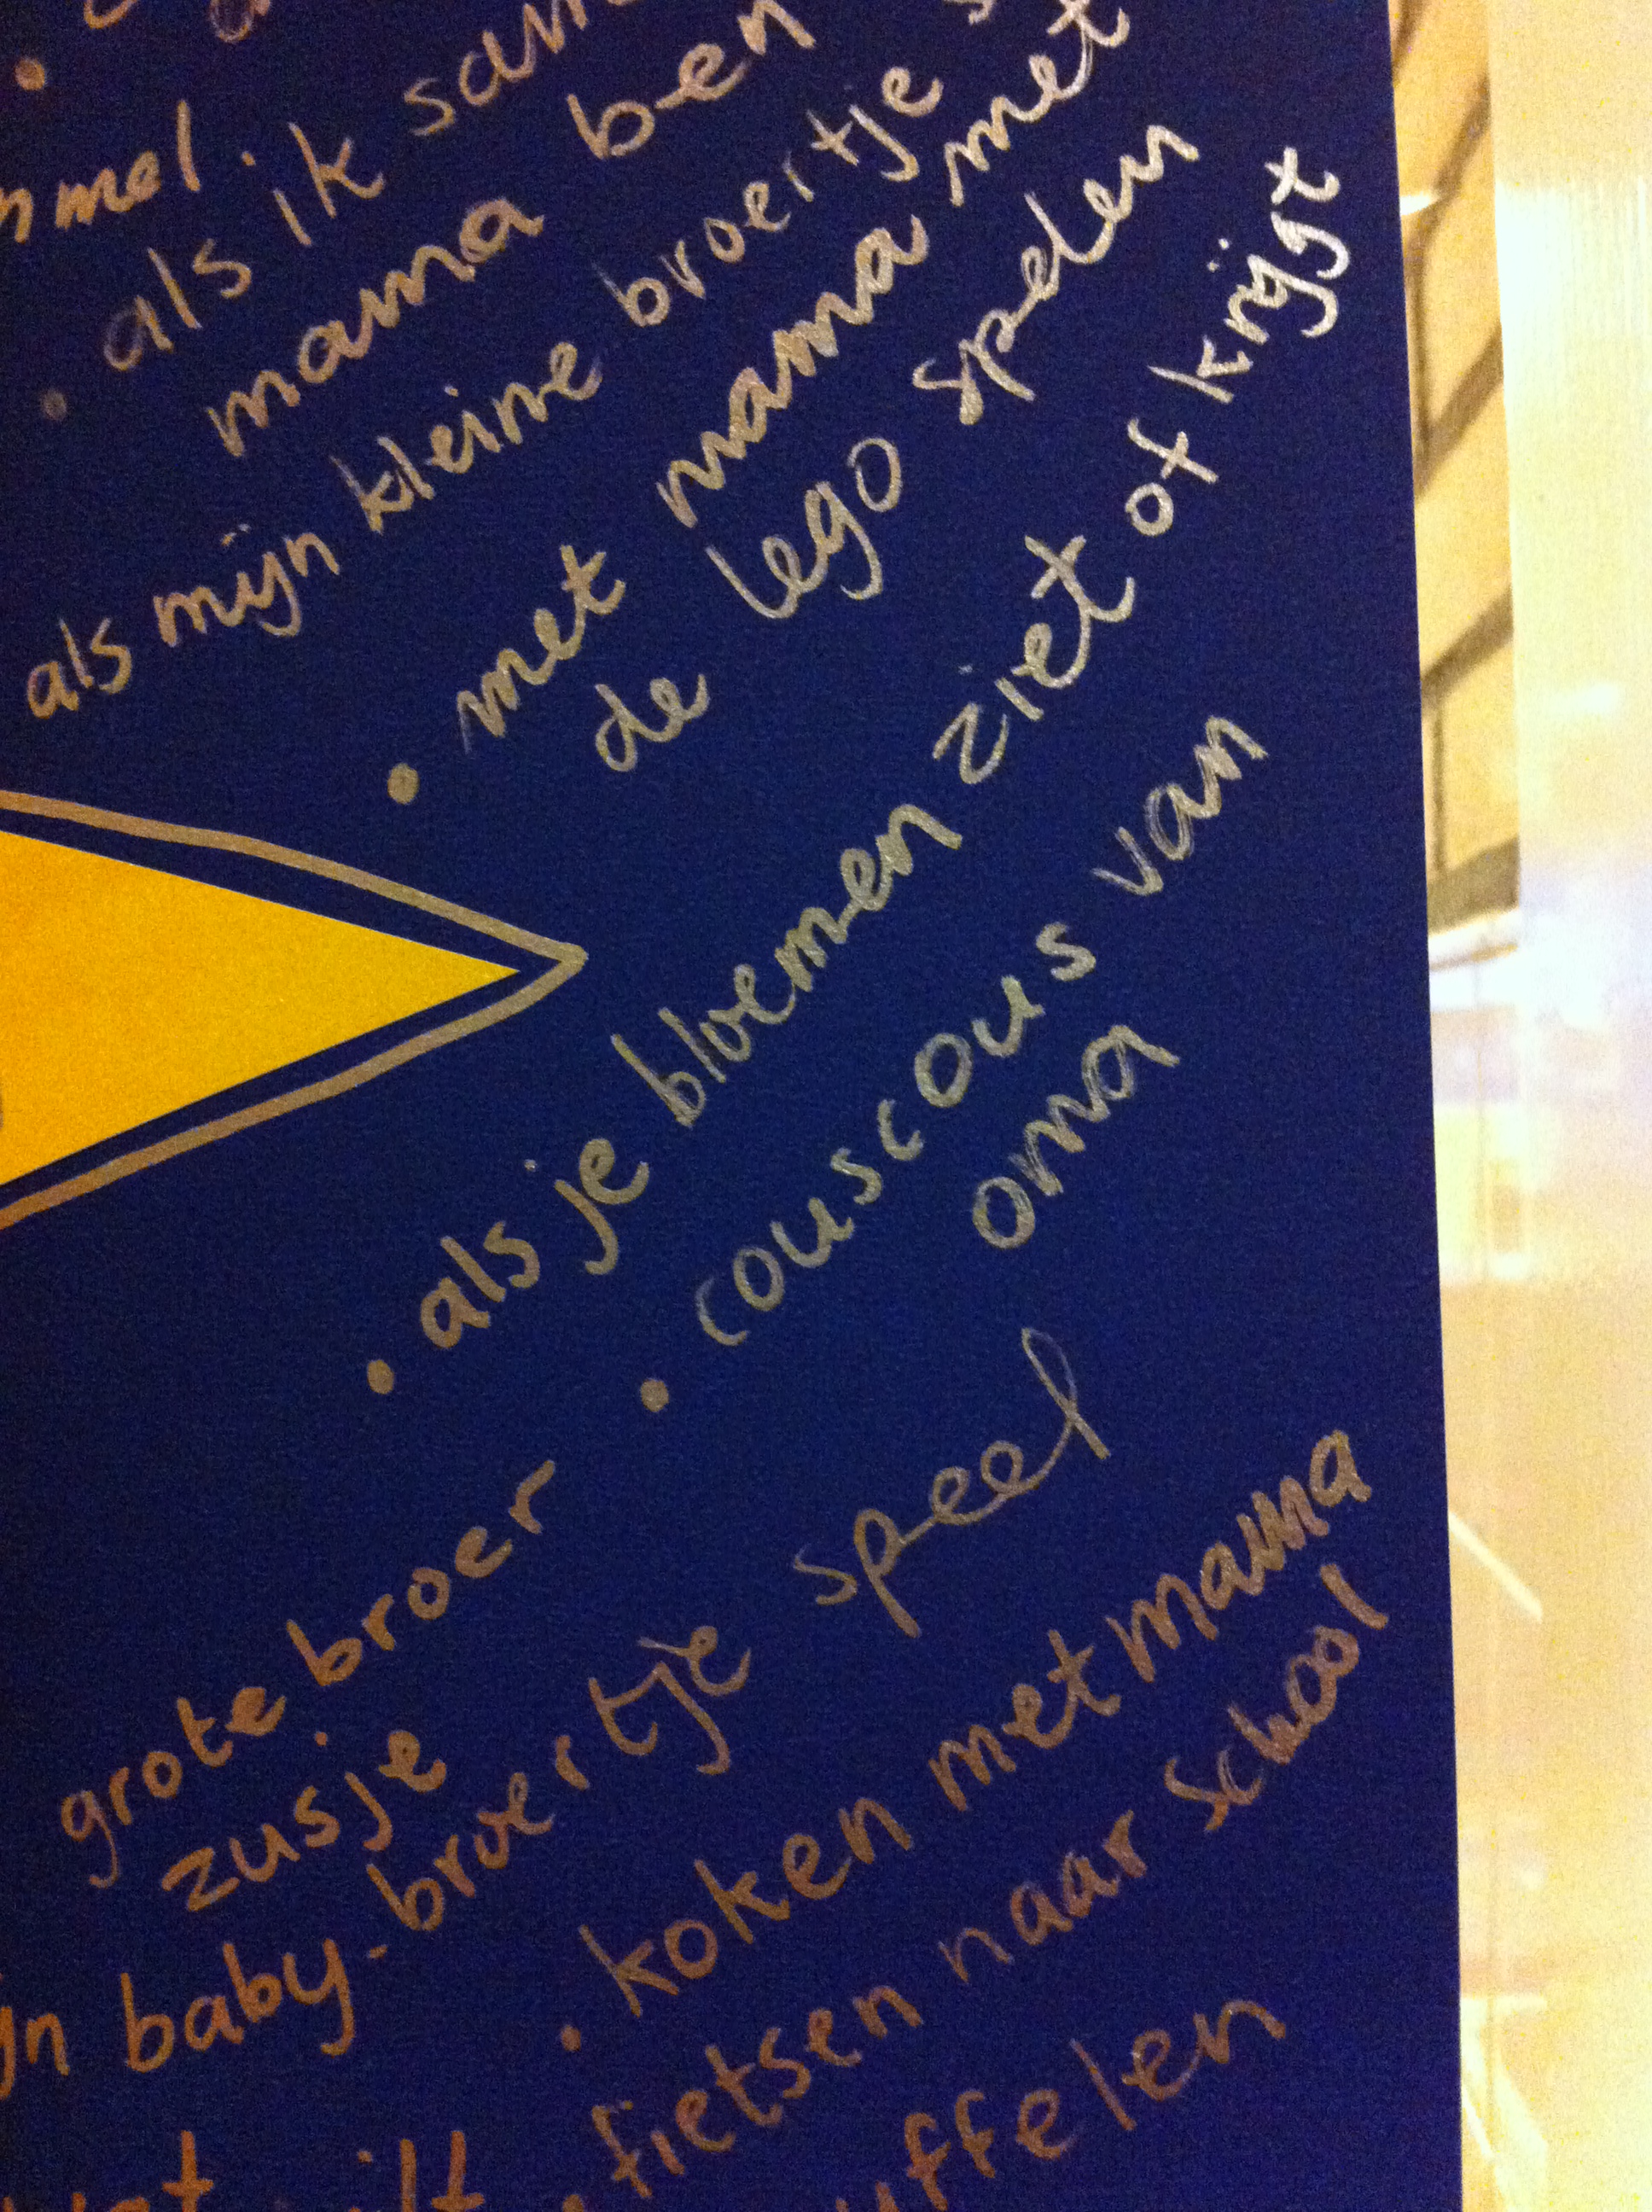 als ik
mama ben
als mijn kleine broertje
• met mama met
de lego spelen
• als je bloemen ziet of krijgt
• couscous van
oma
grote broer
zusje
baby-broertje speel
• koken met mama
• fietsen naar school